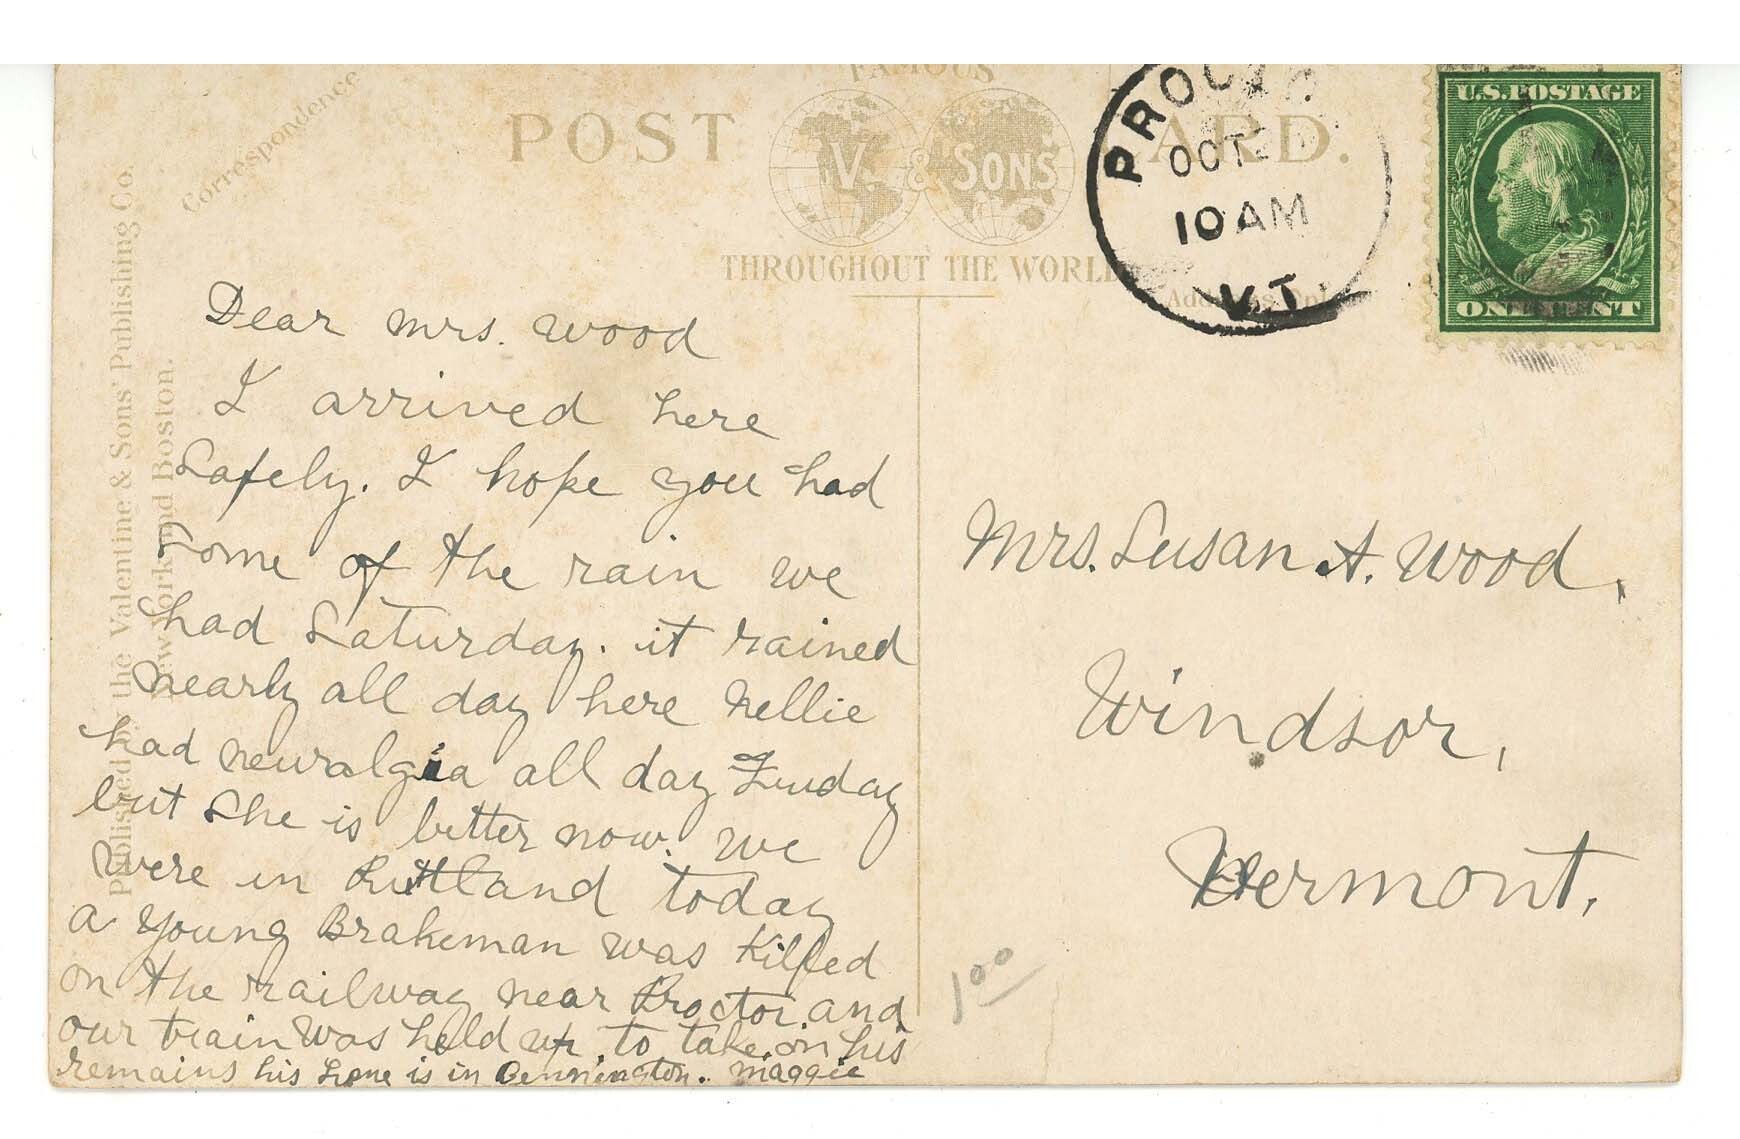 FAMOUS
POST CARD.
V. & SONS
THROUGHOUT THE WORLD
Correspondence
Published by the Valentine & Sons' Publishing Co.
New York and Boston.
PROCTOR
OCT
10 AM
VT.
U.S. POSTAGE
ONE CENT
Address Only
Dear Mrs. Wood
I arrived here
Safely. I hope you had
Some of the rain we
had Saturday. it rained
nearly all day here Nellie
had neuralgia all day Sunday
but She is better now. we
were in Rutland today
a young Brakeman was killed
on the railway near Proctor. and
our train was held up. to take on his
remains his home is in Bennington. Maggie
Mrs. Susan A. Wood,
Windsor,
Vermont.
1 00